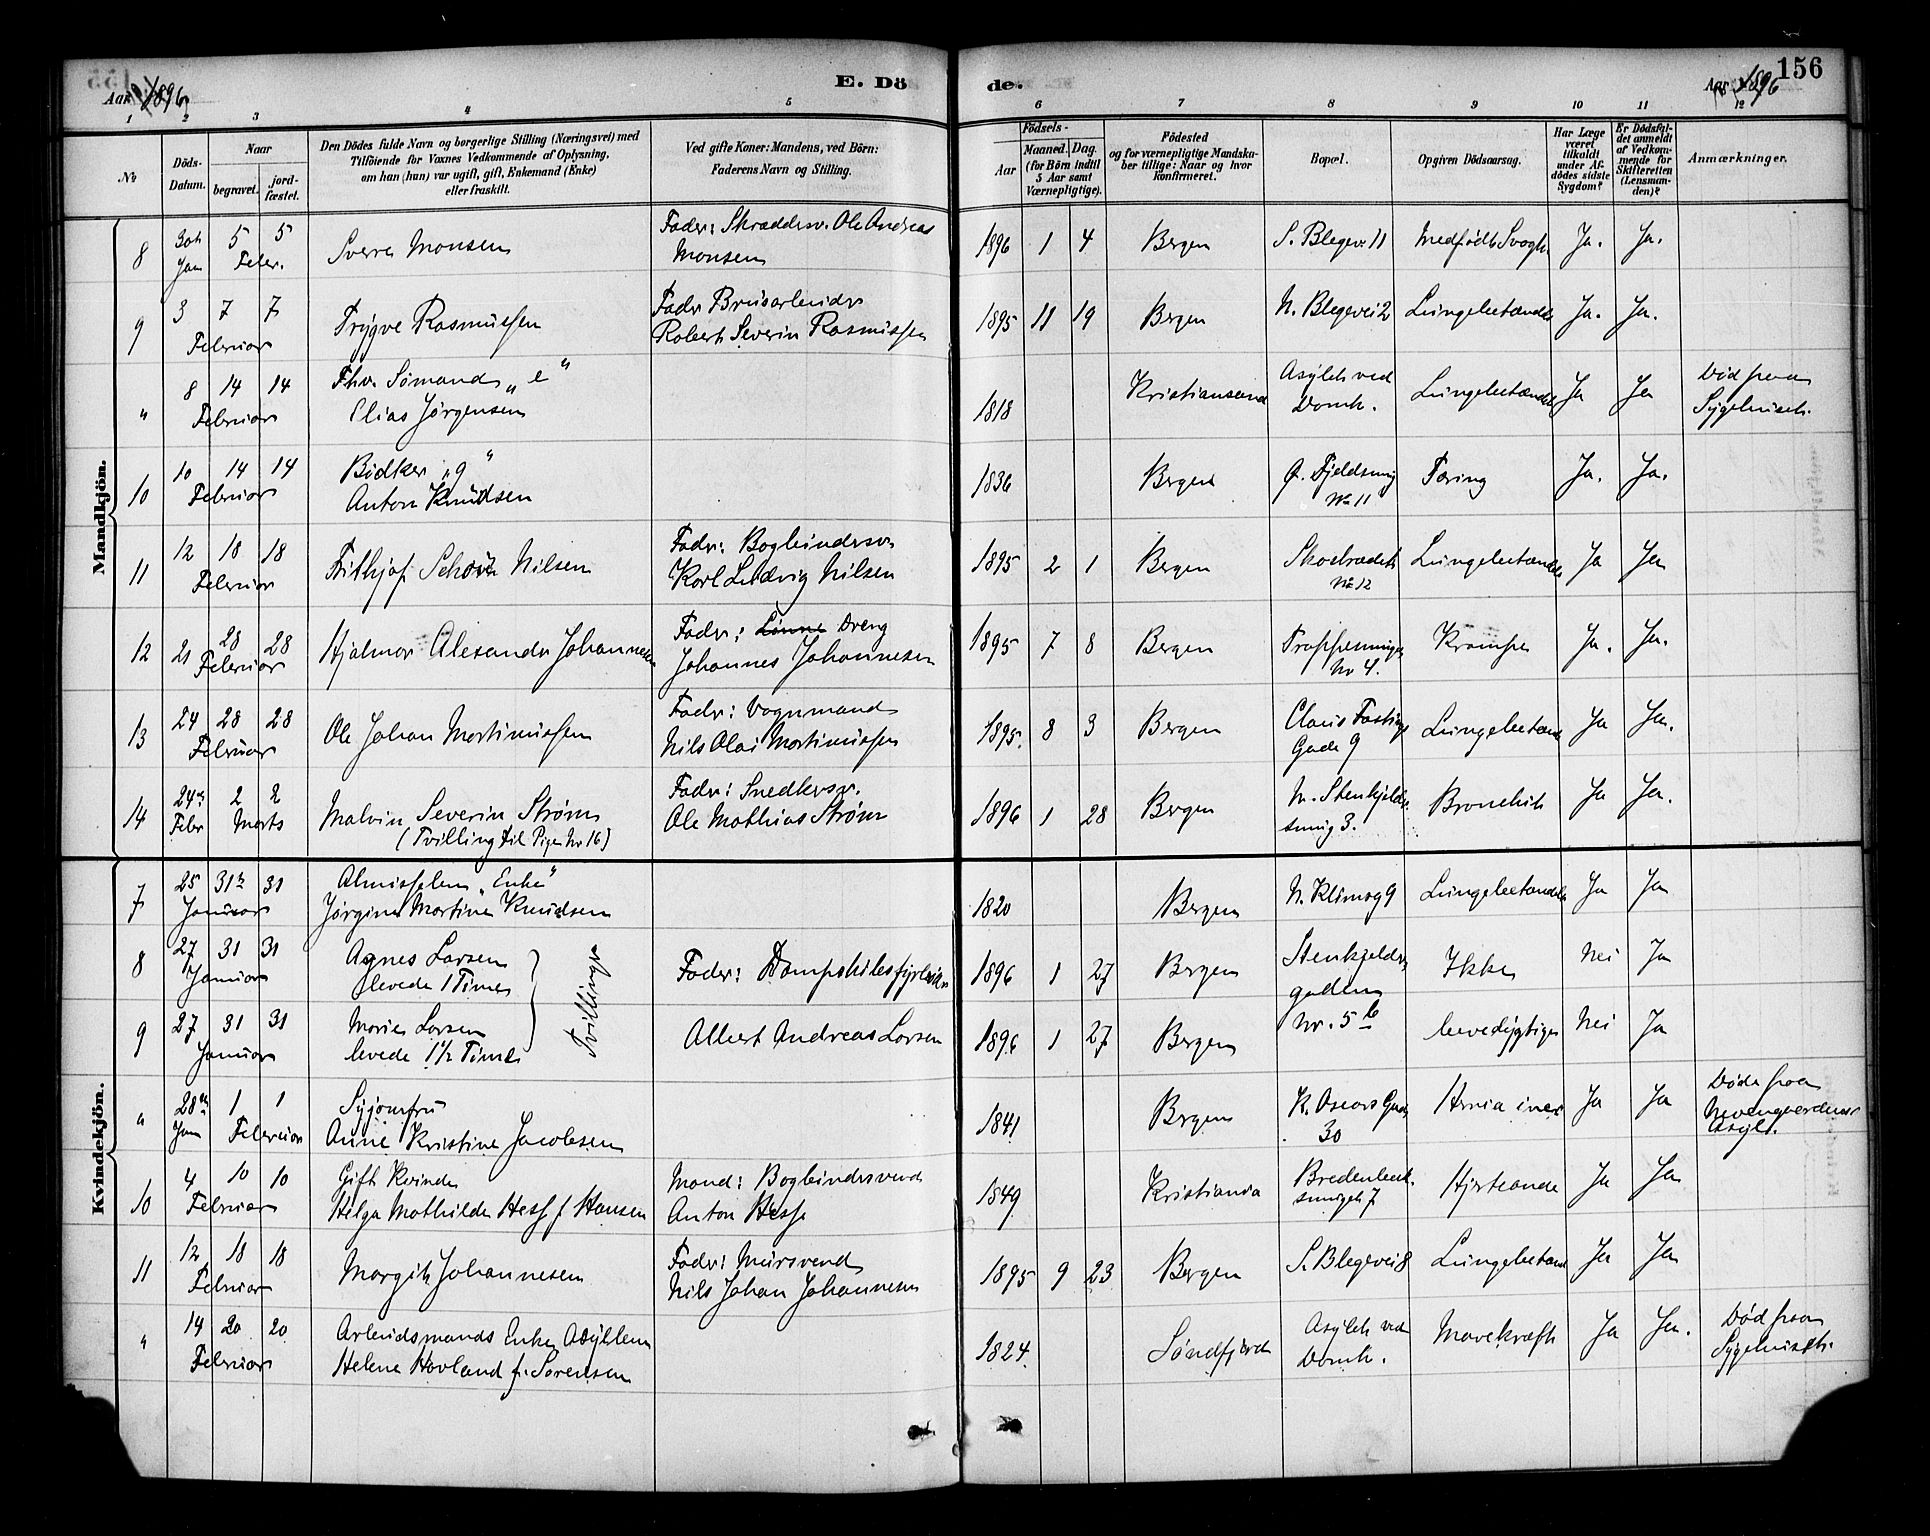 E. Döde.
156
Aar 1896
Aar 1896
1 2 3 4 5 6 7 8 9 10 11 12
No
Döds-Datum.
Naar
begravet.
jord-fæstet.
Den Dödes fulde Navn og borgerlige Stilling (Næringsvei) med
Tilföiende for Voxnes Vedkommende af Oplysning,
om han (hun) var ugift, gift, Enkemand (Enke)
eller fraskilt.
Ved gifte Koner: Mandens, ved Börn:
Faderens Navn og Stilling.
Födsels-
Aar
Maaned. Dag.
(for Börn indtil
5 Aar samt
Værnepligtige).
Födested
og for værnepligtige Mandska-
ber tillige: Naar og hvor
konfirmeret.
Bopæl.
Opgiven Dödsaarsag.
Har Læge
været
tilkaldt
under Af-
dödes sidste
Sygdom?
Er Dödsfal-
det anmeldt
af Vedkom-
mende for
Skifteretten
(Lensman-
den)?
Anmærkninger.
Mandkjön.
8 30te Jan 5 5 Febr. Sverre Monsen Fader: Skræddersv. Ole Andreas Monsen 1896 1 4 Bergen S. Blegev. 11 Medfødt Svagh. Ja. Ja.
9 3 7 7 Februar Trygve Rasmussen Fader Brusarbeider Robert Severin Rasmussen 1895 11 19 Bergen N. Blegevei 2 Lungebetændels Ja. Ja.
" 8 14 14 Februar Fhv. Sömand "e" Elias Jörgensen 1818 Kristianssand Asylet ved Domk. Lungebetændels Ja Ja Död paa Sygehuset.
10 10 14 14 Februar Bödker "g" Anton Knudsen 1836 Bergen Ø. Fjeldsmug No 11 Tæring Ja. Ja.
11 12 18 18 Februar Frithjof Nilsen Fader: Bogbindersv. Karl Ludvig Nilsen 1895 2 1 Bergen No 12 Lungebetændels Ja Ja
12 21 28 28 Februar Hjalmar Alexander Johannesen Fader: Dreng Johannes Johannesen 1895 7 8 Bergen Trappesmuget No 4. Krampe Ja. Ja.
13 24 28 28 Februar Ole Johan Martinussen Fader: Vognmand Nils Olai Martinussen 1895. 8 3 Bergen Claus Fastings Gade 9 Lungebetænd Ja Ja.
14 24de Febr 2 2 Marts Malvin Severin Strøm (Tvilling til Pigen No 16) Fader: Snedkersv. Ole Mathias Strøm 1896 1 28 Bergen N. Stenkjelder smug 3. Bronchit Ja Ja.
Kvindekjön.
7 25 31te 31 Januar Almisselem "Enke" Jørgine Martine Knudsen 1820 Bergen N. Klimog 9 Lungebetændels Ja Ja
8 27 31 31 Januar Agnes Larsen levede 1 Time Tvillinger Fader: Dampskibsfyrbøder 1896 1 27 Bergen Stenkjelder gaden No. 5 b Ikke Nei Ja
9 27 31 31 Januar Marie Larsen levede 1 1/2 Time Albert Andreas Larsen 1896 1 27 Bergen levedygtige Nei Ja
" 28de Jan 1 1 Februar Syjomfru Anne Kristine Jacobsen 1841 Bergen K. Oscars Gade 30 Hernia Ja Ja Døde paa Asyl.
10 4 10 10 Februar Gift Kvinde Helga Mathilde Hess f. Hansen Mand: Bogbindersvend Anton Hess 1849 Kristiania smuget 7 Hjerteonde Ja Ja
11 12 18 18 Februar Margit Johannesen Fader: Mursvend Nils Johan Johannesen 1895 9 23 Bergen S. Blegevei 8 Lungebetænd Ja Ja
" 14 20 20 Februar Arbeidsmands Enke Asyllem Helene Hovland f. Sørensen 1824. Søndfjord Asylet ved Domk. Mavekræft Ja Ja. Död paa Sygehuset.